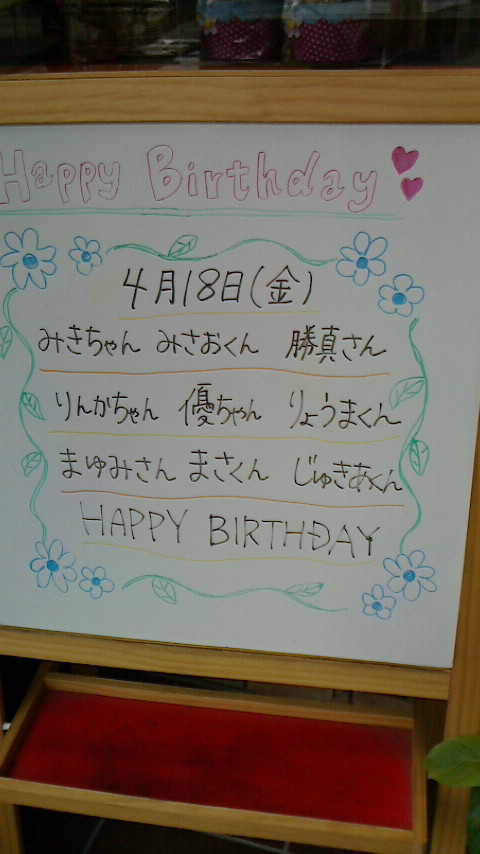 Happy Birthday
4月18日(金)
みきちゃん みさおくん 勝真さん
りんかちゃん 優ちゃん りょうまくん
まゆみさん まさくん じゅきあくん
HAPPY BIRTHDAY